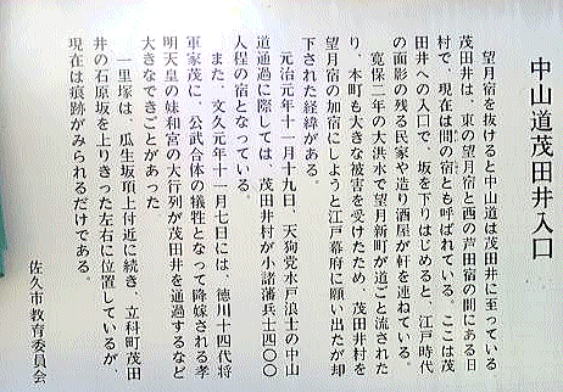 中山道茂田井入口
望月宿を抜けると中山道は茂田井に至っている
茂田井は、東の望月宿と西の芦田宿の間にある日
村で、現在は間の宿とも呼ばれている。ここは茂
田井への入口で、坂を下りはじめると、江戸時代
の面影の残る民家や造り酒屋が軒を連ねている。
寛保二年の大洪水で望月新町が道ごと流された
り、本町も大きな被害を受けたため、茂田井村を
望月宿の加宿にしようと江戸幕府に願い出たが却
下された経緯がある。
元治元年十一月十九日、天狗党水戸浪士の中山
道通過に際しては、茂田井村が小諸藩兵士四〇〇
人程の宿となっている。
また、文久元年十一月七日には、徳川十四代将
軍家茂に、公武合体の犠牲となって降嫁される孝
明天皇の妹和宮の大行列が茂田井を通過するなど
大きなできごとがあった
一里塚は、瓜生坂頂上付近に続き、立科町茂田
井の石原坂を上りきった左右に位置しているが、
現在は痕跡がみられるだけである。
佐久市教育委員会